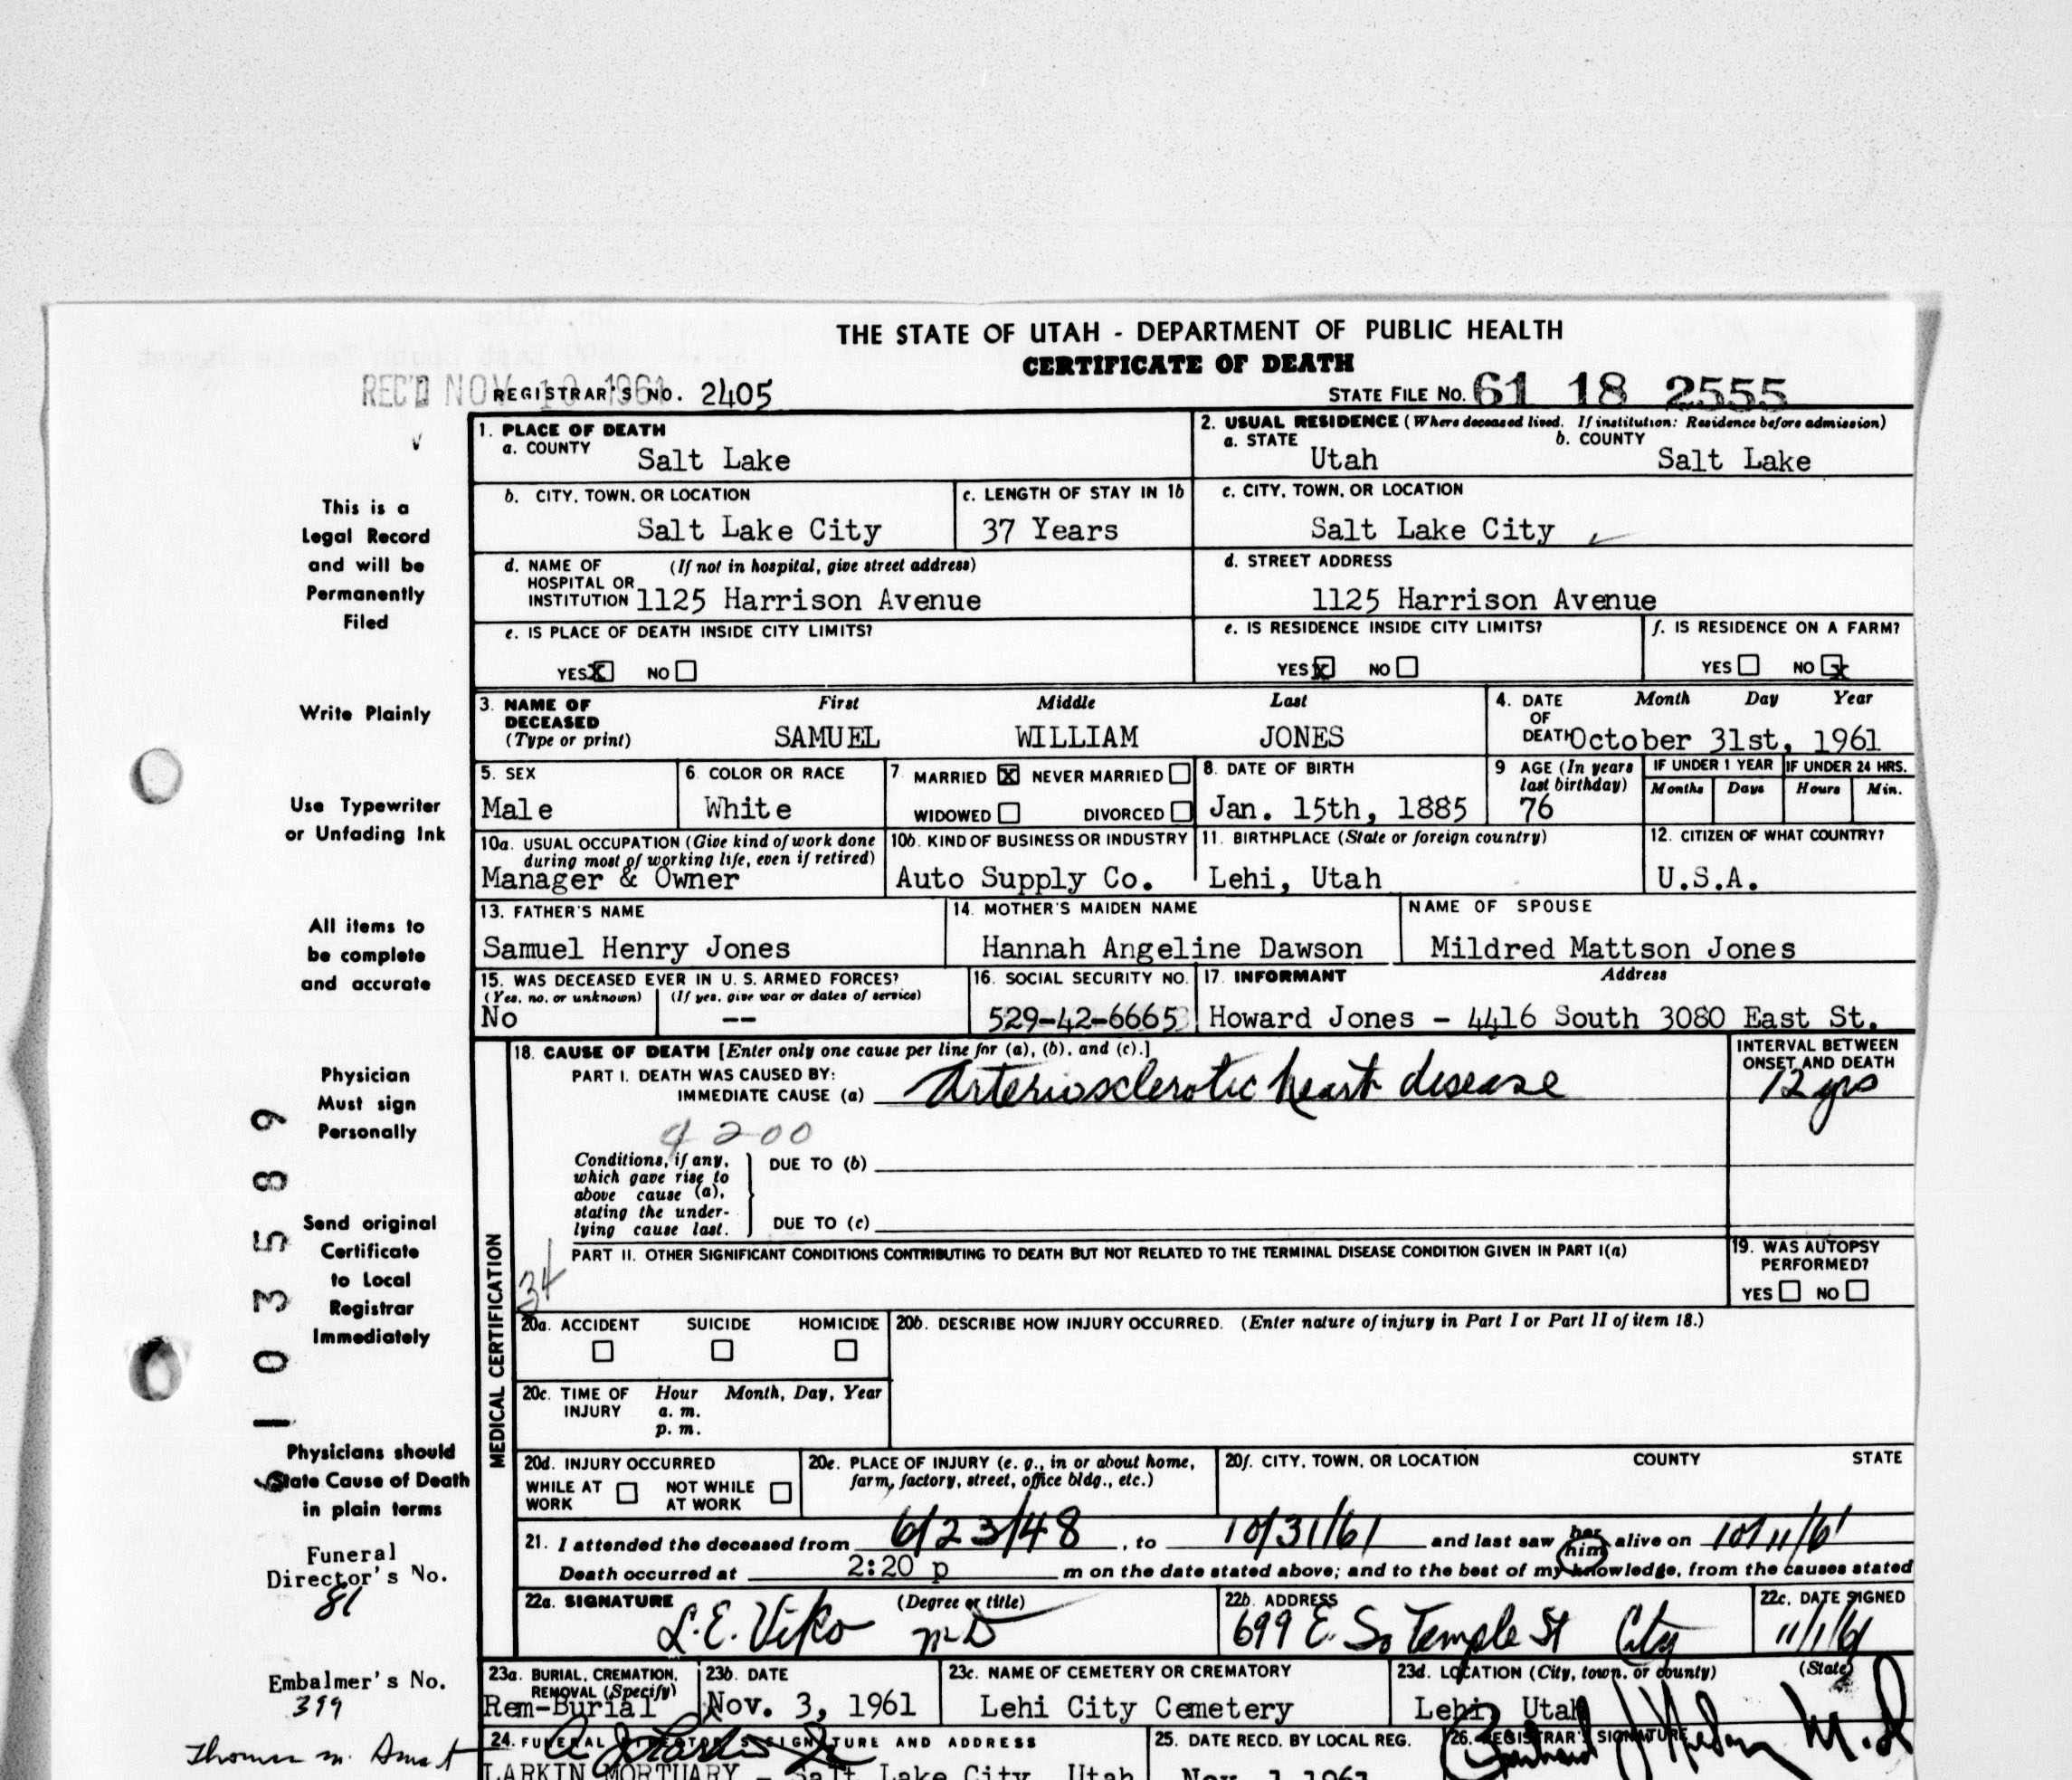 THE STATE OF UTAH - DEPARTMENT OF PUBLIC HEALTH
CERTIFICATE OF DEATH
REC'D NOV 10 1961
REGISTRAR'S NO. 2405
STATE FILE NO. 61 18 2555
1. PLACE OF DEATH
a. COUNTY Salt Lake
2. USUAL RESIDENCE (Where deceased lived. If institution: Residence before admission)
a. STATE Utah b. COUNTY Salt Lake
b. CITY, TOWN, OR LOCATION Salt Lake City
c. LENGTH OF STAY IN 1b 37 Years
c. CITY, TOWN, OR LOCATION Salt Lake City
d. NAME OF HOSPITAL OR INSTITUTION (If not in hospital, give street address) 1125 Harrison Avenue
d. STREET ADDRESS 1125 Harrison Avenue
e. IS PLACE OF DEATH INSIDE CITY LIMITS?
YES X NO
e. IS RESIDENCE INSIDE CITY LIMITS?
YES X NO
f. IS RESIDENCE ON A FARM?
YES NO X
3. NAME OF DECEASED (Type or print)
First Middle Last
SAMUEL WILLIAM JONES
4. DATE OF DEATH Month Day Year
October 31st, 1961
5. SEX Male
6. COLOR OR RACE White
7. MARRIED X NEVER MARRIED
WIDOWED DIVORCED
8. DATE OF BIRTH Jan. 15th, 1885
9 AGE (In years last birthday) 76
IF UNDER 1 YEAR Months Days
IF UNDER 24 HRS. Hours Min.
10a. USUAL OCCUPATION (Give kind of work done during most of working life, even if retired)
Manager & Owner
10b. KIND OF BUSINESS OR INDUSTRY
Auto Supply Co.
11. BIRTHPLACE (State or foreign country)
Lehi, Utah
12. CITIZEN OF WHAT COUNTRY?
U.S.A.
13. FATHER'S NAME
Samuel Henry Jones
14. MOTHER'S MAIDEN NAME
Hannah Angeline Dawson
NAME OF SPOUSE
Mildred Mattson Jones
15. WAS DECEASED EVER IN U. S. ARMED FORCES?
(Yes, no, or unknown) (If yes, give war or dates of service)
No --
16. SOCIAL SECURITY NO.
529-42-6665
17. INFORMANT Address
Howard Jones - 4416 South 3080 East St.
18. CAUSE OF DEATH [Enter only one cause per line for (a), (b), and (c).]
PART I. DEATH WAS CAUSED BY:
IMMEDIATE CAUSE (a) Arteriosclerotic heart disease
INTERVAL BETWEEN ONSET AND DEATH
12 yrs
4200
Conditions, if any, which gave rise to above cause (a), stating the underlying cause last.
DUE TO (b)
DUE TO (c)
PART II. OTHER SIGNIFICANT CONDITIONS CONTRIBUTING TO DEATH BUT NOT RELATED TO THE TERMINAL DISEASE CONDITION GIVEN IN PART I(a)
34
19. WAS AUTOPSY PERFORMED?
YES NO
MEDICAL CERTIFICATION
20a. ACCIDENT SUICIDE HOMICIDE
20b. DESCRIBE HOW INJURY OCCURRED. (Enter nature of injury in Part I or Part II of item 18.)
20c. TIME OF INJURY Hour Month, Day, Year
a. m.
p. m.
20d. INJURY OCCURRED
WHILE AT WORK NOT WHILE AT WORK
20e. PLACE OF INJURY (e. g., in or about home, farm, factory, street, office bldg., etc.)
20f. CITY, TOWN, OR LOCATION COUNTY STATE
21. I attended the deceased from 6/23/48, to 10/31/61 and last saw her him alive on 10/11/61
Death occurred at 2:20 p m on the date stated above; and to the best of my knowledge, from the causes stated
22a. SIGNATURE (Degree or title)
L. E. Viko MD
22b. ADDRESS
699 E. So Temple St City
22c. DATE SIGNED
11/1/61
23a. BURIAL, CREMATION, REMOVAL (Specify)
Rem-Burial
23b. DATE
Nov. 3, 1961
23c. NAME OF CEMETERY OR CREMATORY
Lehi City Cemetery
23d. LOCATION (City, town, or county) (State)
Lehi, Utah
24. FUNERAL DIRECTOR'S SIGNATURE AND ADDRESS
LARKIN MORTUARY - Salt Lake City, Utah
25. DATE RECD. BY LOCAL REG.
Nov. 1 1961
26. REGISTRAR'S SIGNATURE
M.D
This is a
Legal Record
and will be
Permanently
Filed
Write Plainly
Use Typewriter
or Unfading Ink
All items to
be complete
and accurate
Physician
Must sign
Personally
Send original
Certificate
to Local
Registrar
Immediately
Physicians should
State Cause of Death
in plain terms
Funeral
Director's No.
81
Embalmer's No.
399
Thomas M.
103589